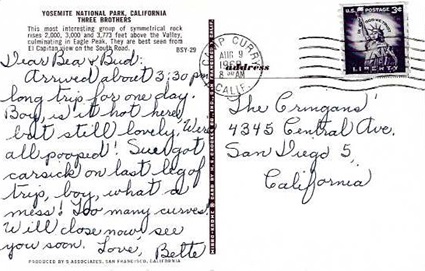 YOSEMITE NATIONAL PARK, CALIFORNIA
THREE BROTHERS
This most interesting group of symmetrical rock
rises 2,000, 3,000 and 3,773 feet above the Valley,
culminating in Eagle Peak. They are best seen from
El Capitan view on the South Road. BSY-29
Dear Bea & Bud:
Arrived about 3:30 pm
long trip for one day.
Boy, is it hot here
but still lovely. We're
all pooped! Sue got
carsick on last leg of
trip, boy, what a
mess! Too many curves!
Will close now, see
you soon. Love, Bette
PRODUCED BY S ASSOCIATES, SAN FRANCISCO, CALIFORNIA
CAMP CURRY
AUG 9
8 30 AM
CALIF.
address
U.S. POSTAGE 3¢
LIBERTY
The
4345 Central Ave.
San Diego 5,
California